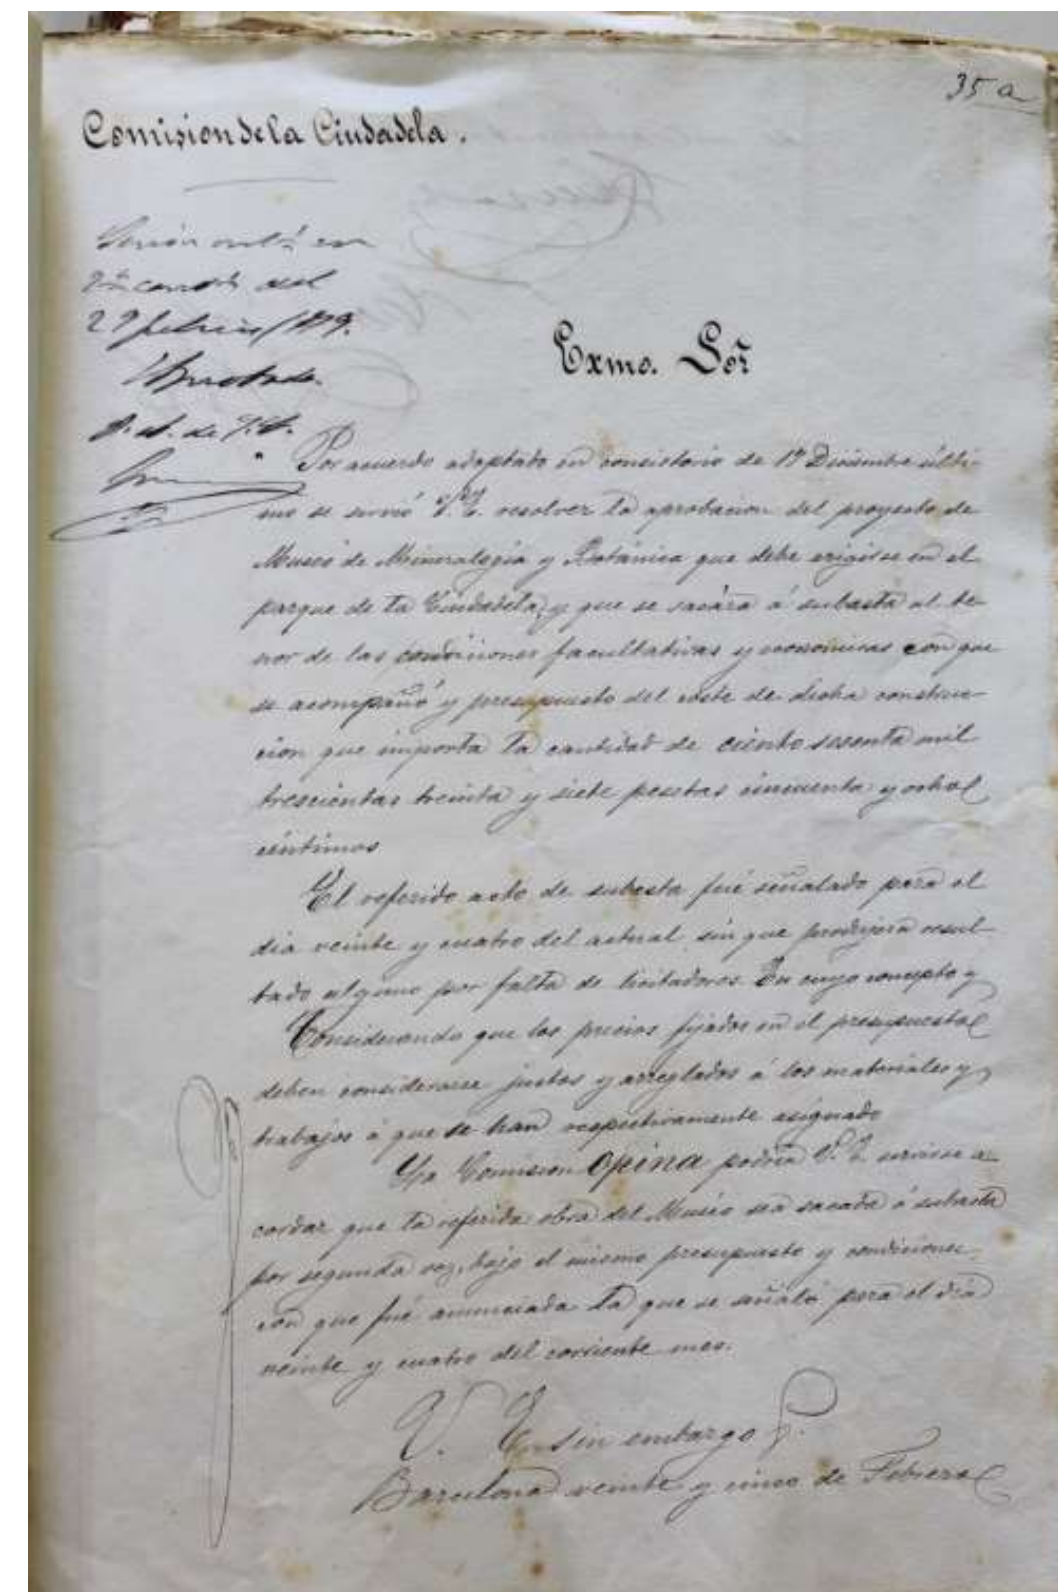 35 a
Comision de la Ciudadela.
Sesión
2ª del
27 febrero 1879.
Aprobado.
P. A. de
Exmo. Sor
Por acuerdo adoptado en consistorio de 17 Diciembre últi-
mo se sirvió V. E. resolver la aprobacion del proyecto de
Museo de Mineralogía y Botánica que debe erigirse en el
parque de la Ciudadela, y que se sacára á subasta al te-
nor de las condiciones facultativas y económicas con que
se acompañó y presupuesto del coste de dicha construc-
cion que importa la cantidad de ciento sesenta mil
trescientas treinta y siete pesetas cincuenta y ocho
céntimos
El referido acto de subasta fué señalado para el
dia veinte y cuatro del actual sin que produjera resul-
tado alguno por falta de licitadores. En cuyo concepto y
Considerando que los precios fijados en el presupuesto
deben considerarse justos y arreglados á los materiales y
trabajos á que se han respectivamente asignado
La Comision Opina podria V. E. servirse a-
cordar que la referida obra del Museo sea sacada á subasta
por segunda vez, bajo el mismo presupuesto y condiciones
con que fué anunciada la que se señaló para el dia
veinte y cuatro del corriente mes.
V. E. sin embargo
Barcelona veinte y cinco de Febrero